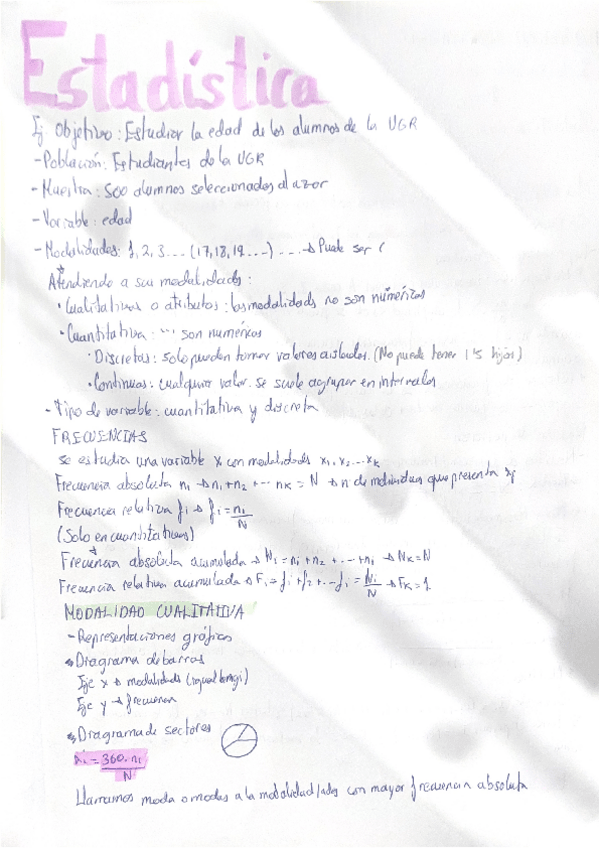 Estadística
Ej Objetivo: Estudiar la edad de los alumnos de la UGR
- Población: Estudiantes de la UGR
- Muestra: 500 alumnos seleccionados al azar
- Variable: edad
- Modalidades: 1, 2, 3 ... (17, 18, 19 ...) ... → Puede ser (
Atendiendo a sus modalidades:
· Cualitativas o atributos: las modalidades no son numéricas
· Cuantitativa: "" son numéricas
· Discretas: solo pueden tomar valores aislados. (No puede tener 1'5 hijos)
· Continuas: cualquier valor. se suele agrupar en intervalos
- Tipo de variable: cuantitativa y discreta
FRECUENCIAS
se estudia una variable X con modalidades x₁, x₂ ... xₖ
Frecuencia absoluta nᵢ → n₁ + n₂ + ... nₖ = N → n de individuos que presenta xᵢ
Frecuencia relativa fᵢ → fᵢ = nᵢ/N
(Solo en cuantitativas)
Frecuencia absoluta acumulada → Nᵢ = n₁ + n₂ + ... + nᵢ → Nₖ = N
Frecuencia relativa acumulada → Fᵢ = f₁ + f₂ + ... fᵢ = Nᵢ/N → Fₖ = 1
MODALIDAD CUALITATIVA
- Representaciones gráficas
Diagrama de barras
Eje x → modalidades (igual longi)
Eje y → frecuencia
Diagrama de sectores
αᵢ = 360·nᵢ/N
Llamamos moda o modas a la modalidad/ades con mayor frecuencia absoluta